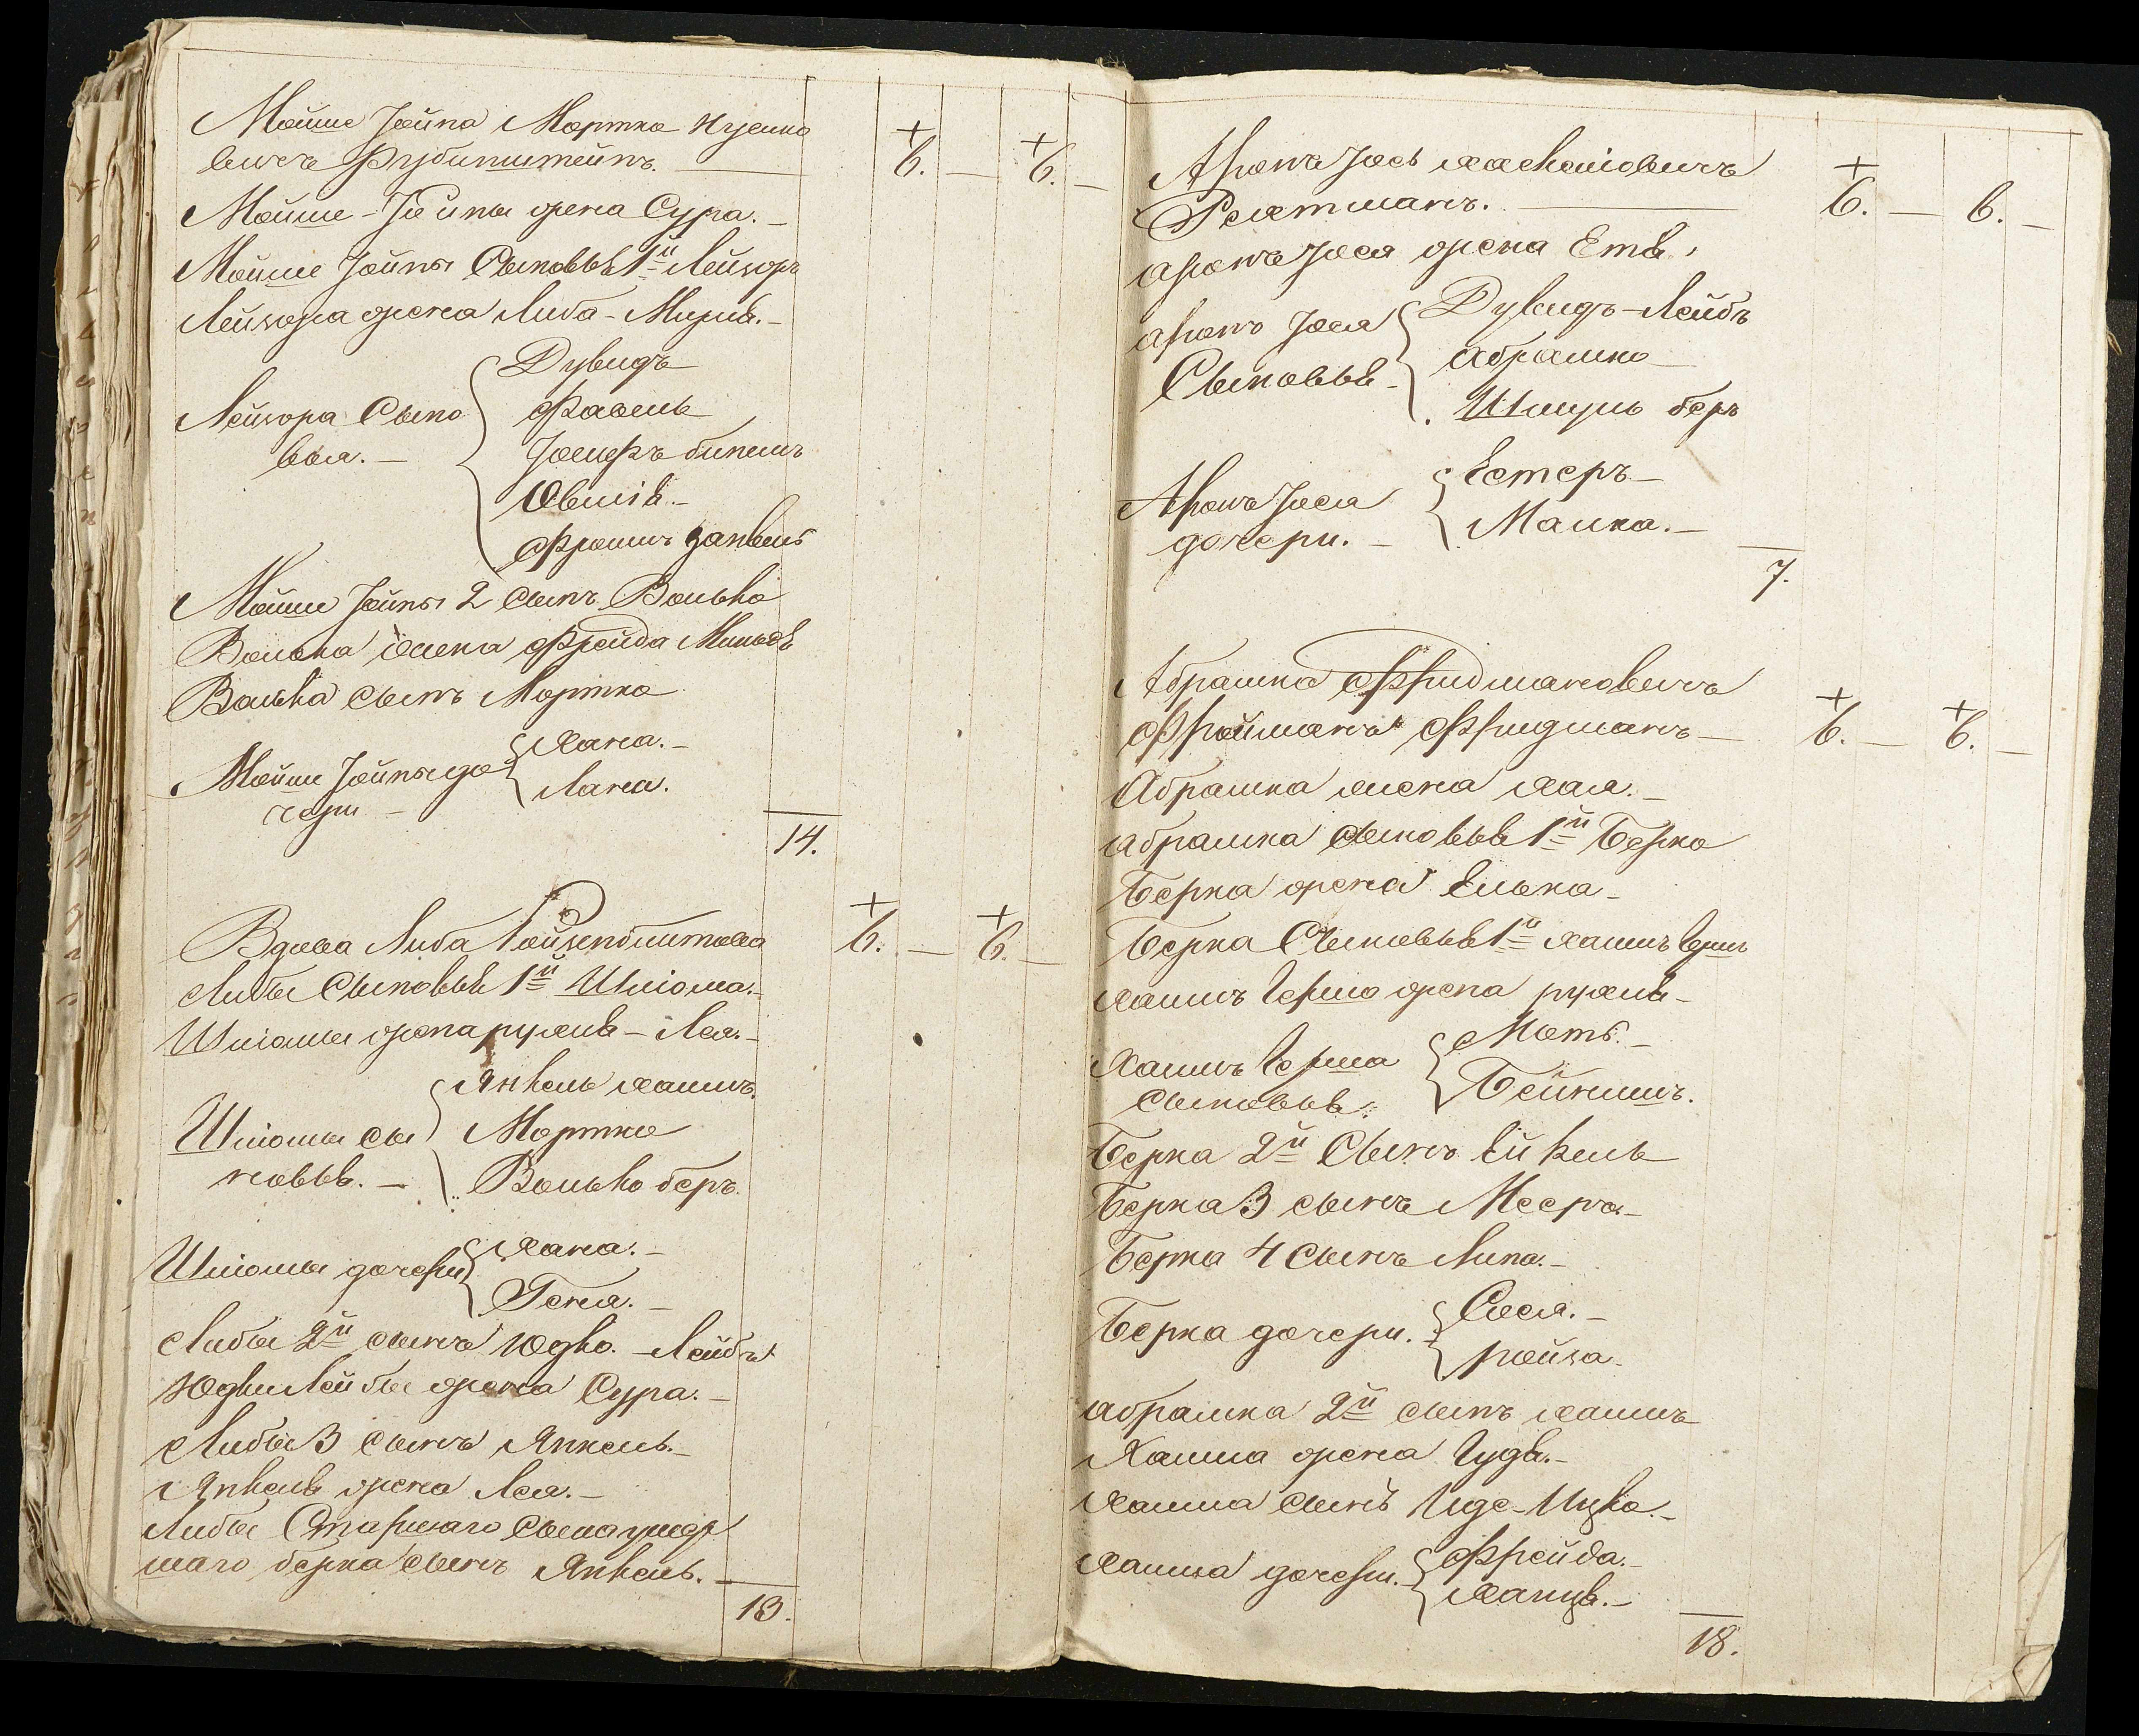 Мойше Іойна Мортко Ицько
вичъ Рубинштейнъ. 6. — 6. —
Мойше-Іойны жена Сура. —
Мойше Іойны Сыновья 1й Лейзоръ
Лейзора жена Либа-Мирля. —
Дувидъ
Лейзора Сыно
вья. —
Файвель
Іосифъ
Овшія. —
Мойше Іойны 2 Сынъ Волько
Волька жена Фрейда
Волька сынъ Мортко
Мойше Іойны до
чери —
Хана. —
Лана.
14.
Вдова Либа 6. — 6. —
Либы Сыновья 1й Шліома. —
Шліомы жена рухля — Лея. —
Шліомы сы
новья. —
Янкель хаимъ.
Мортко
Волько беръ.
Шліомы дочери
Хана. —
Геня. —
Либы 2й сынъ Юдко. — Лейба
Юдки Лейбы жена Сура. —
Либы 3 сынъ Янкель. —
Янкеля жена Лея. —
Либы Старшаго Сына умер
шаго берка сынъ Янкель. —
13.
Аронъ Іось
6. — 6. —
Аронъ Іося жена Етля,
Аронъ Іося
Сыновья —
Дувидъ-Лейбъ
Абрашко —
Шмуль беръ
Аронъ Іося
дочери. —
Естеръ —
Малка. —
7.
Абрашка Фридмановичъ
Фридманъ — 6. — 6. —
Абрашка жена хая. —
Абрашка сыновья 1й Берко
Берка жена Елька —
Берка Сыновья 1й хаимъ Гершъ
хаимъ Герша жена рухля —
Хаимъ Герша
сыновья.
Мотя. —
Бейнишъ.
Берка 2й Сынъ Ейкель
Берка 3 сынъ Мееръ. —
Берка 4 Сынъ Липа. —
Берка дочери.
Сося. —
ройза —
Абрашка 2й сынъ хаимъ
Хаима жена Гудя. —
Хаима сынъ Иде-Ицко. —
Хаима дочери. —
Фрейда. —
Ханця. —
18.